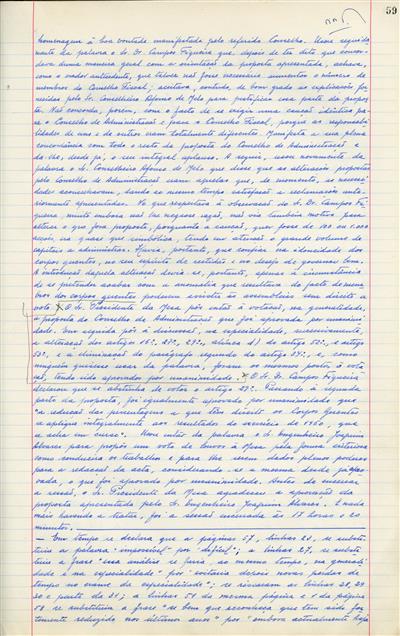 59
homenagem à boa vontade manifestada pelo referido Conselho. Usou seguida
mente da palavra o Sr. Dr. Campos Figueira que, depois de ter dito que concor-
dava duma maneira geral com a orientação da proposta apresentada, achava,
como o orador antecedente, que talvez não fosse necessário aumentar o número de
membros do Conselho Fiscal; aceitava, contudo, de bom grado as explicações for
necidas pelo Sr. Conselheiro Afonso de Melo para justificar essa parte da propos
ta. Não concorda, porém, com o facto de se exigir uma caução idêntica pa-
ra o Conselho de Administração e para o Conselho Fiscal, porque as responsabili
dades de uns e de outros eram totalmente diferentes. Manifesta a sua plena
concordância com todo o resto da proposta do Conselho de Administração e
dá-lhe, desde já, o seu integral aplauso. A seguir, usou novamente da
palavra o Sr. Conselheiro Afonso de Melo que disse que as alterações propostas
pelo Conselho de Administração eram aquelas que, de momento, as necessi
dades aconselhavam, dando ao mesmo tempo satisfação a reclamações ante
riormente apresentadas. No que respeitava à observação do Sr. Dr. Campos Fi
gueira, muito embora não lhe negasse razão, não via também motivo para
alterar o que fora proposto, porquanto a caução, quer fosse de 100 ou 1.000
acções, era quase que simbólica, tendo em atenção o grande volume de
capitais a administrar. Havia, portanto, que confiar na idoneidade dos
corpos gerentes, no seu espírito de rectidão e no desejo de governar bem.
A introdução daquela alteração devia-se, portanto, apenas à circunstância
de se pretender acabar com a anomalia que resultava do facto de mem
bros dos corpos gerentes poderem assistir às assembleias sem direito a
voto. O Sr. Presidente da Mesa pôs então à votação, na generalidade,
a proposta do Conselho de Administração que foi aprovada por unanimi
dade. Em seguida pôs à discussão, na especialidade, sucessivamente,
a alteração dos artigos 16º, 27º, 29º, alínea d) do artigo 52º, e artigo
55º, e a eliminação do parágrafo segundo do artigo 34º e, como
ninguém quisesse usar da palavra, foram os mesmos postos à vota
ção, tendo sido aprovados por unanimidade. O Sr. Dr. Campos Figueira
declarou que se abstinha de votar o artigo 27º. Passando à segunda
parte da proposta, foi igualmente aprovado por unanimidade que
"a redução das percentagens a que têm direito os Corpos Gerentes
se aplique integralmente aos resultados do exercício de 1960, que
se acha em curso". Usou então da palavra o Sr. Engenheiro Joaquim
Alvares para propor um voto de louvor à Mesa pela forma criteriosa
como conduzira os trabalhos e para lhe serem dados plenos poderes
para a redacção da acta, considerando-se a mesma desde já apro-
vada, o que foi aprovado por unanimidade. Antes de encerrar
a sessão, o Sr. Presidente da Mesa agradeceu a aprovação da
proposta apresentada pelo Sr. Engenheiro Joaquim Alvares. E nada
mais havendo a tratar, foi a sessão encerrada às 17 horas e 20
minutos.
— Em tempo se declara que a páginas 57, linhas 20, se substi
tuiu a palavra "impossível" por "difícil"; a linhas 27, se substi
tuiu a frase "essa análise se faria, ao mesmo tempo, na generali
dade e na especialidade" por "evitaria desses novas perdas de
tempo no exame da especialidade"; se riscaram as linhas 28, 29,
30 e parte da 31; a linhas 51 da mesma página e 1 da página
58 se substituiu a frase "se bem que reconheça que têm sido for
temente reduzido nos últimos anos" por "embora actualmente haja